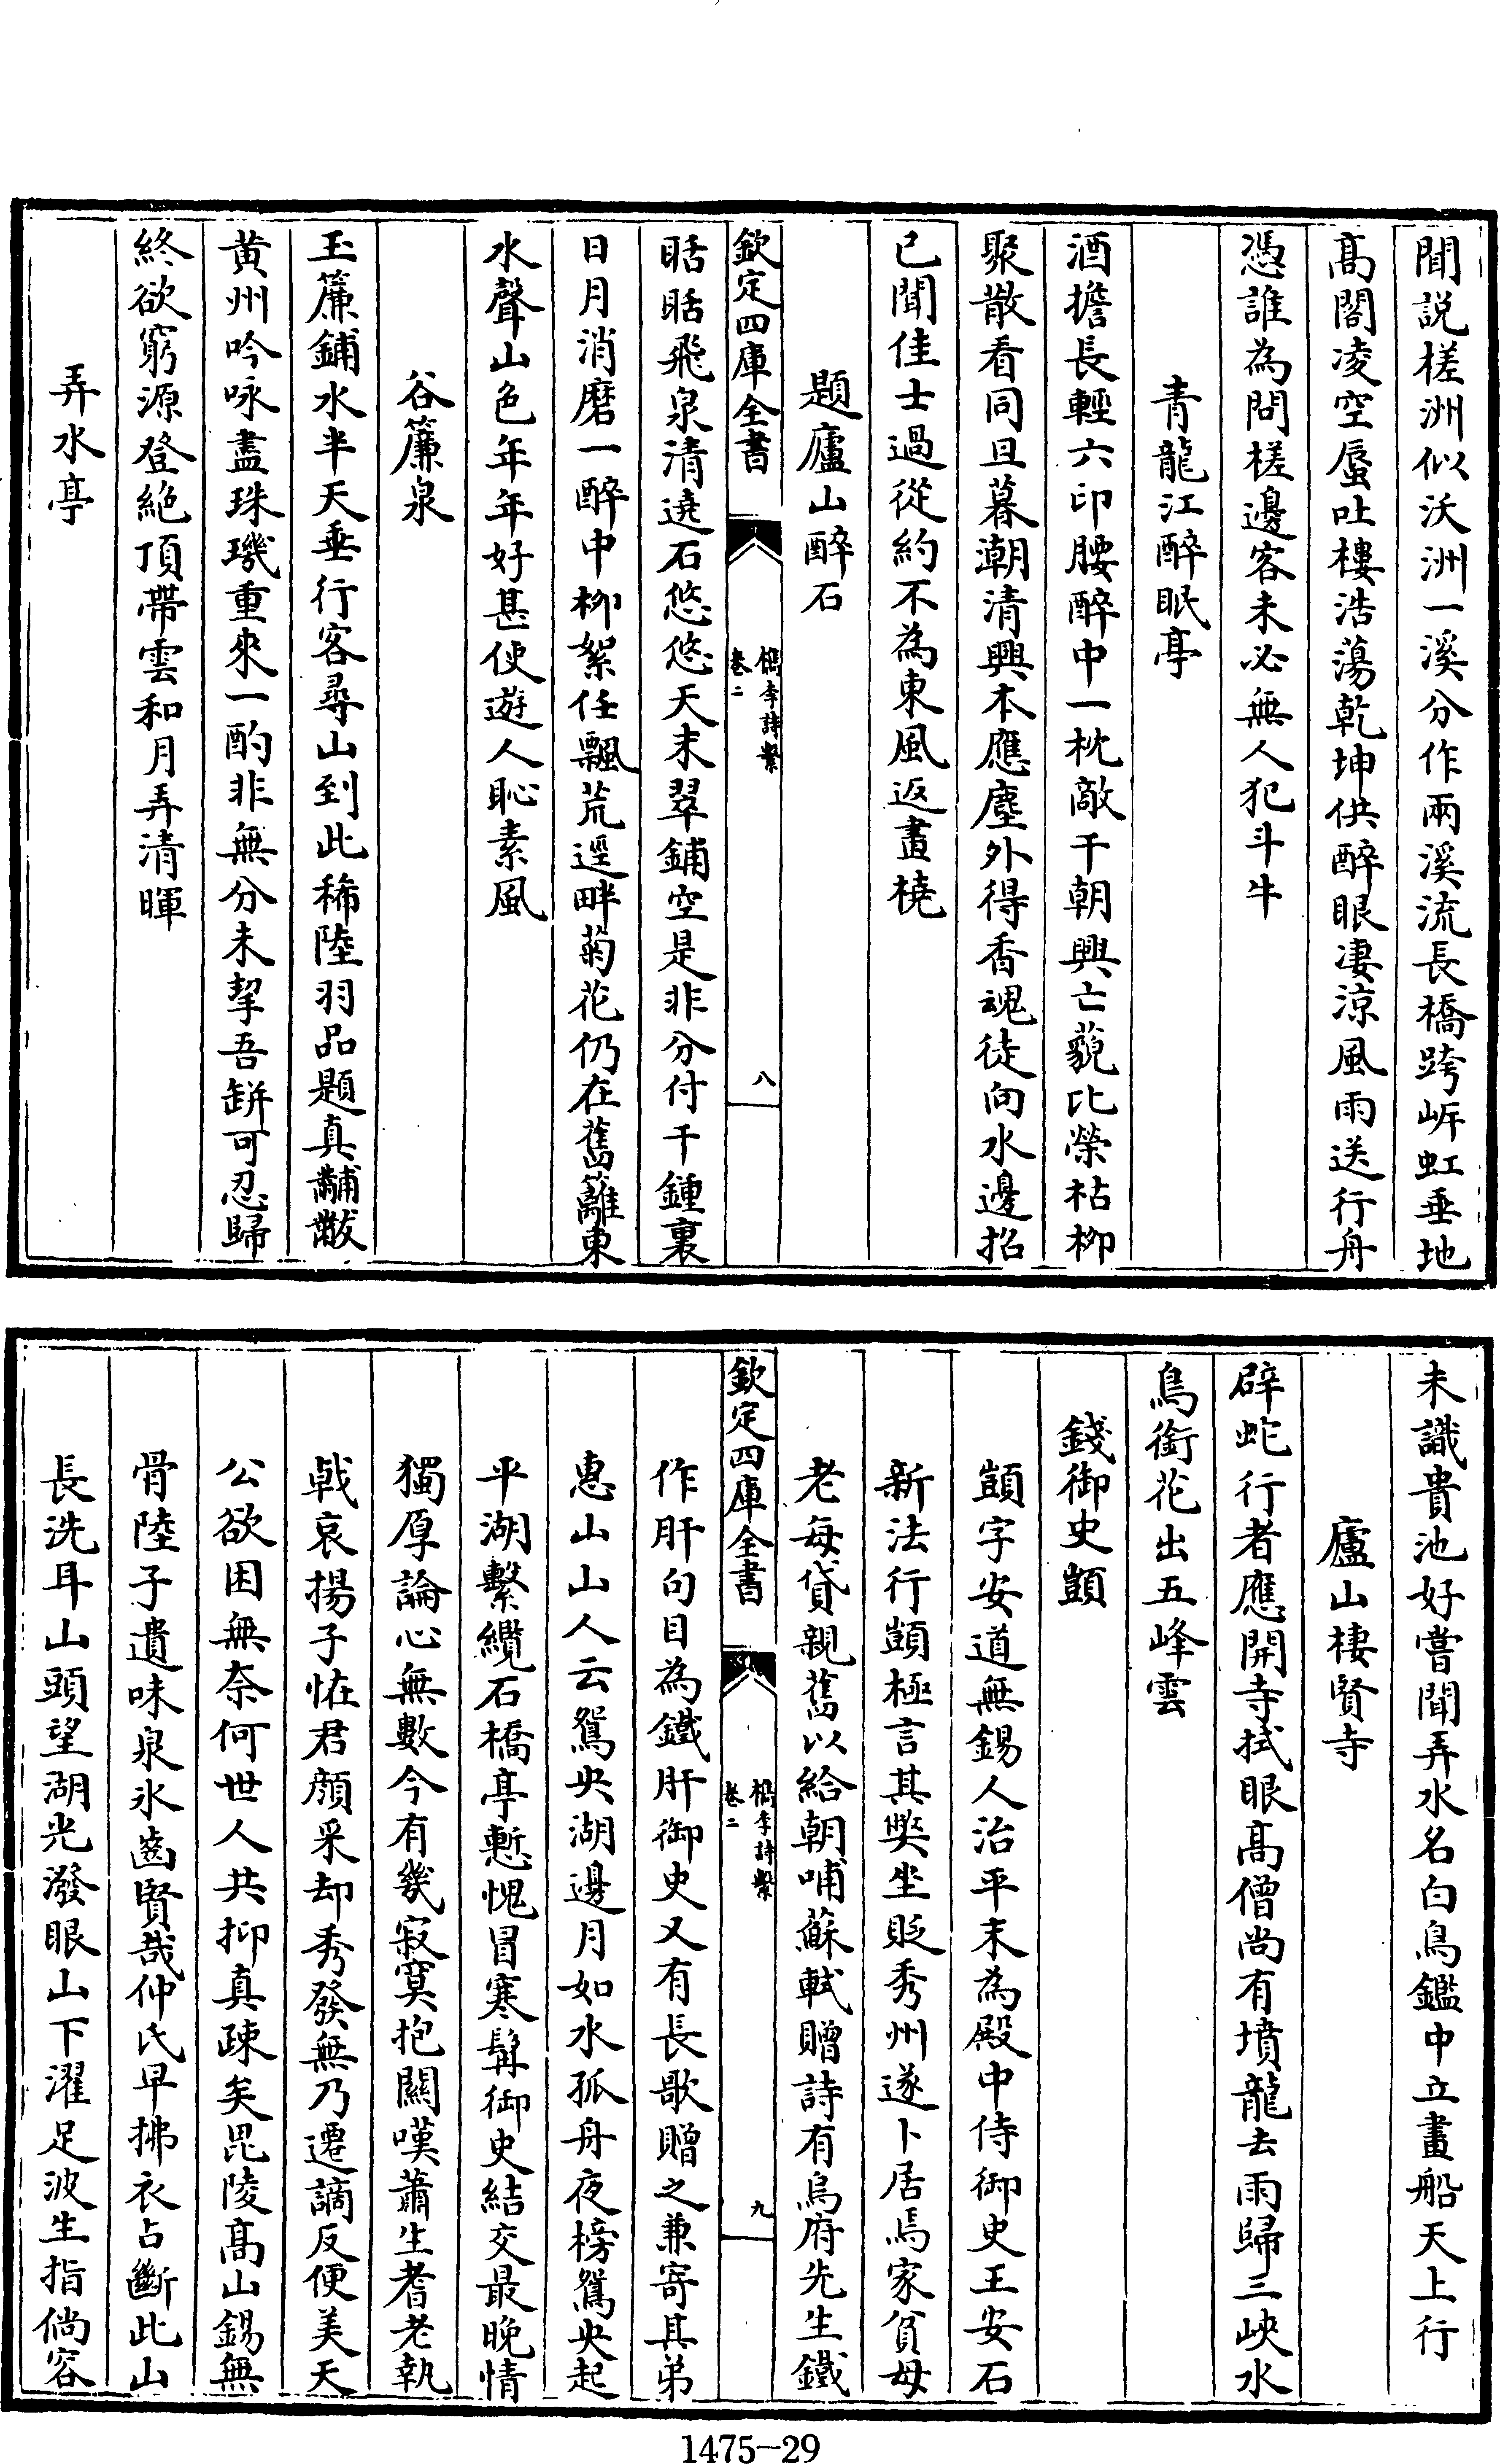 聞説槎洲似沃洲一溪分作兩溪流長橋跨㟁虹垂地
髙閣凌空蜃吐樓浩蕩乾坤供醉眼凄涼風雨送行舟
憑誰為問槎邊客未必無人犯斗牛
青龍江醉眠亭
酒擔長輕六印腰醉中一枕敵千朝興亡藐比榮枯栁
聚散看同旦暮潮清興本應塵外得香魂徒向水邊招
已聞佳士過從約不為東風返畫橈
題廬山醉石
欽定四庫全書
檇李詩繫
卷二
八
聒聒飛泉清遶石悠悠天末翠鋪空是非分付千鍾裏
日月消磨一醉中栁絮任飄荒逕畔菊花仍在舊籬東
水聲山色年年好甚使遊人恥素風
谷簾泉
玉簾鋪水半天垂行客尋山到此稀陸羽品題真黼黻
黄州吟咏盡珠璣重來一酌非無分未挈吾缾可忍歸
終欲窮源登絶頂帶雲和月弄清暉
弄水亭
未識貴池好嘗聞弄水名白鳥鑑中立畫船天上行
廬山棲賢寺
辟蛇行者應開寺拭眼髙僧尚有墳龍去雨歸三峽水
鳥銜花出五峰雲
錢御史顗
顗字安道無錫人治平末為殿中侍御史王安石
新法行顗極言其獘坐貶秀州遂卜居焉家貧母
老每貸親舊以給朝晡蘇軾贈詩有烏府先生鐵
欽定四庫全書
檇李詩繫
卷二
九
作肝句目為鐵肝御史又有長歌贈之兼寄其弟
惠山山人云鴛央湖邊月如水孤舟夜榜鴛央起
平湖繫纜石橋亭慙愧冒寒髯御史結交最晚情
獨厚論心無數今有幾寂寞抱關嘆蕭生耆老執
戟哀揚子恠君顔采却秀發無乃遷謫反便美天
公欲困無奈何世人共抑真疎矣毘陵髙山錫無
骨陸子遺味泉氷齒賢哉仲氏早拂衣占斷此山
長洗耳山頭望湖光潑眼山下濯足波生指倘容
1475-29